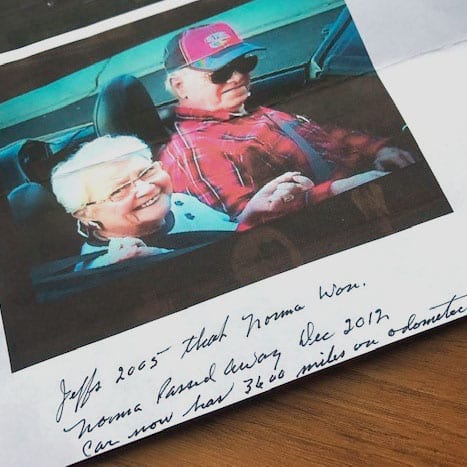 Jeffs 2005 that Norma Won.
Norma Passed Away Dec 2012
Car now has 3600 miles on odometer